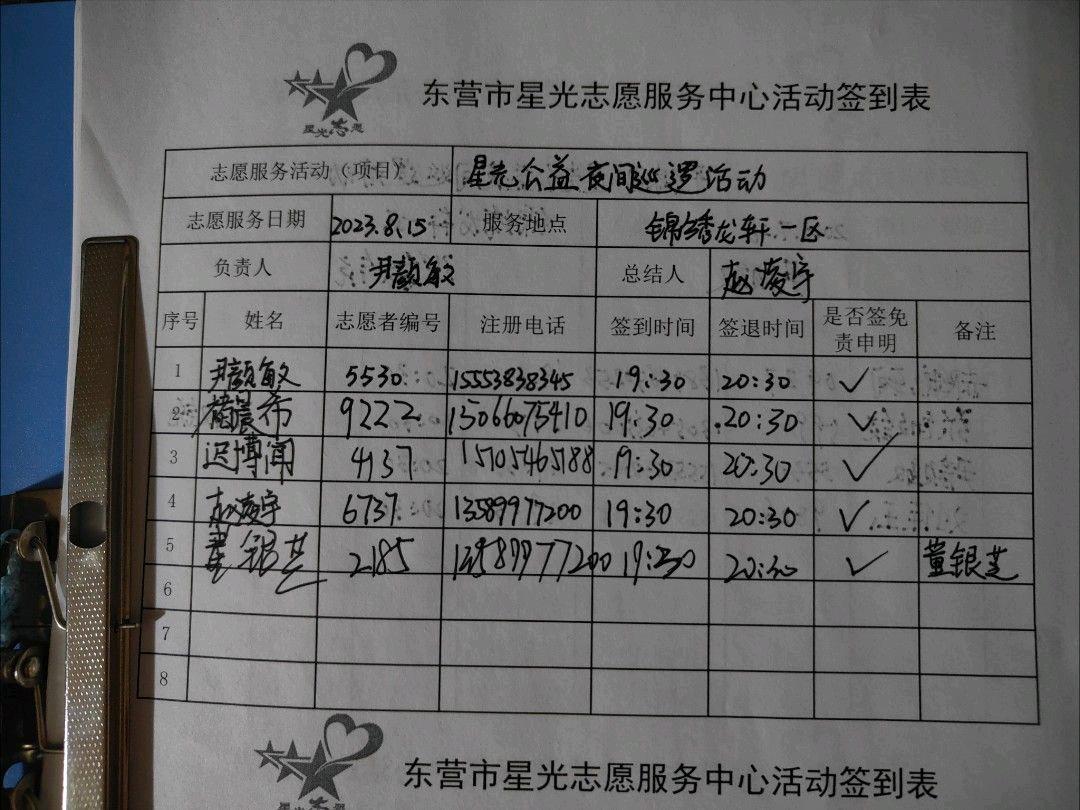 星光志愿
东营市星光志愿服务中心活动签到表
志愿服务活动（项目） 星光公益夜间巡逻活动
志愿服务日期 2023.8.15 服务地点 锦绣龙轩一区
负责人 尹颜敏 总结人 赵凌宇
序号 姓名 志愿者编号 注册电话 签到时间 签退时间 是否签免责申明 备注
1 尹颜敏 5530 15553838345 19:30 20:30 ✓
2 9222 15066075410 19:30 20:30 ✓
3 迟博闻 4137 15105465188 19:30 20:30 ✓
4 赵凌宇 6737 13589977200 19:30 20:30 ✓
5 董银芝 2185 13589977200 19:30 20:30 ✓ 董银芝
6
7
8
东营市星光志愿服务中心活动签到表